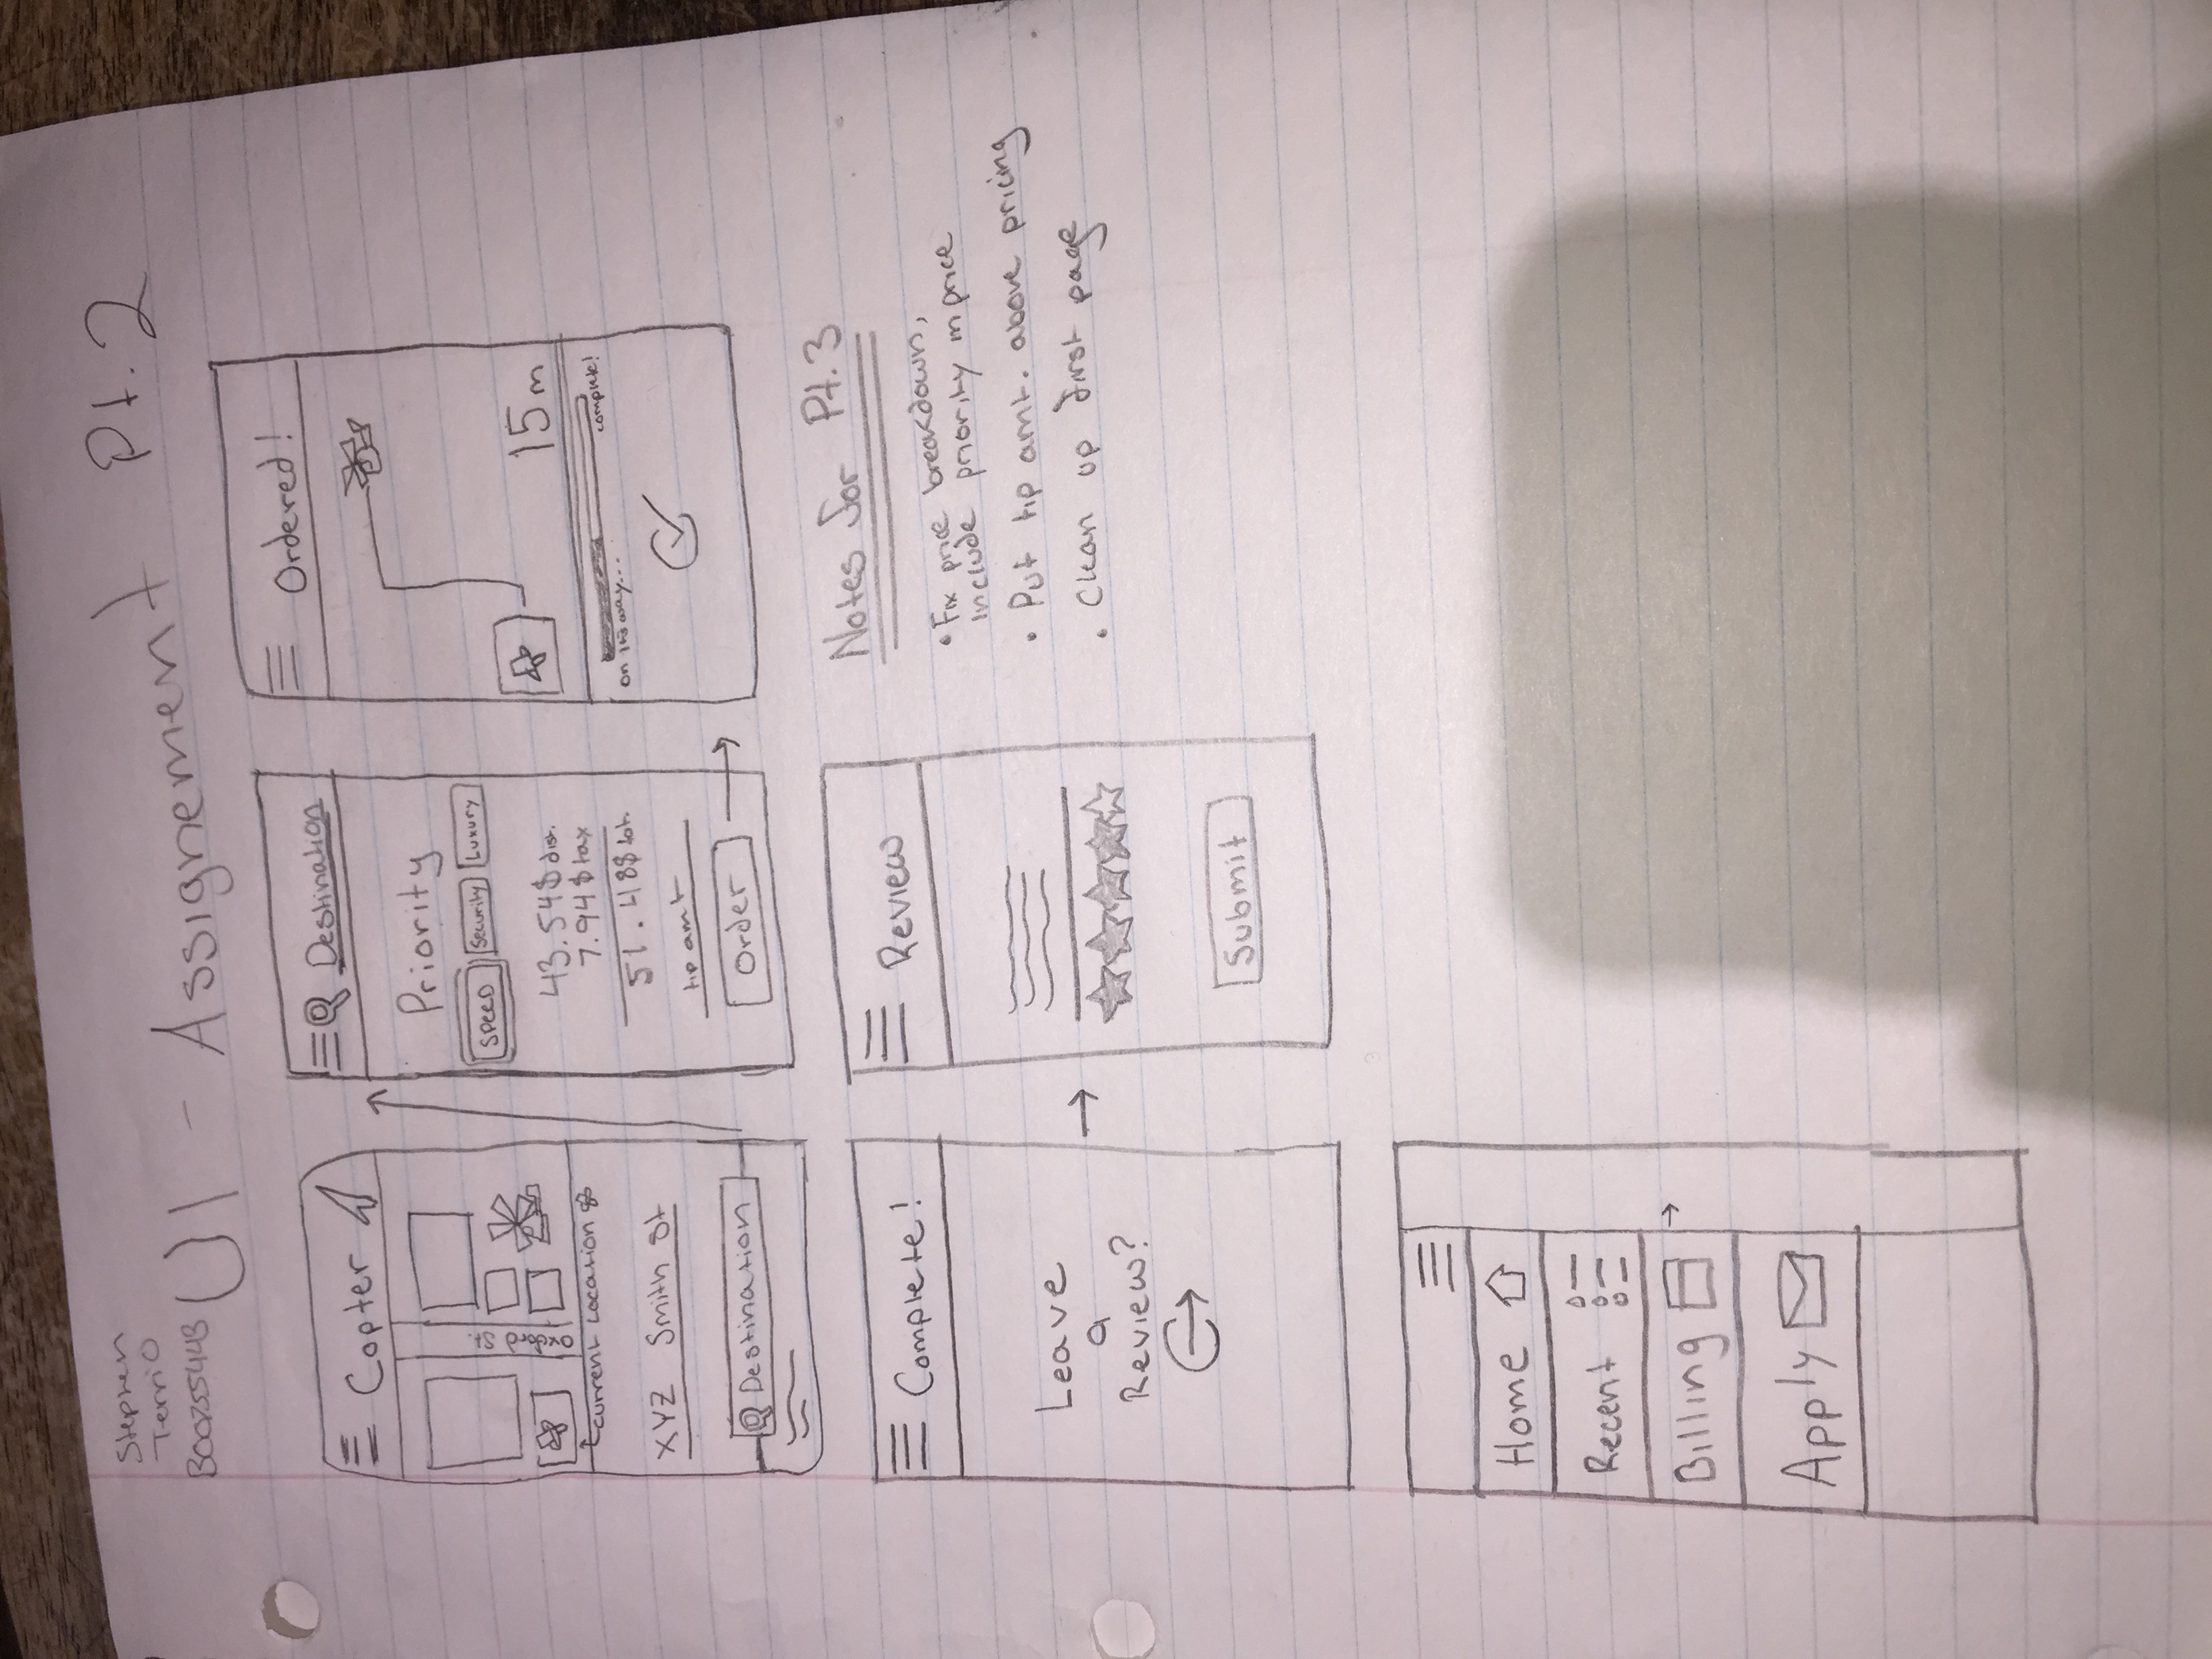 Stephen
Terrio
UI - Assignement Pt. 2
Copter
Oxford St.
current Location
XYZ Smith St
Destination
Destination
Priority
SPEED Security Luxury
43.54$ dist.
7.94$ tax
51.48$ tot.
tip amt
Order
Ordered!
15m
complete!
on its way...
Complete!
Leave
a
Review?
Review
Submit
Notes for Pt.3
• Fix price breakdown,
include priority in price
• Put tip amt. above pricing
• Clean up first page
Home
Recent
Billing
Apply